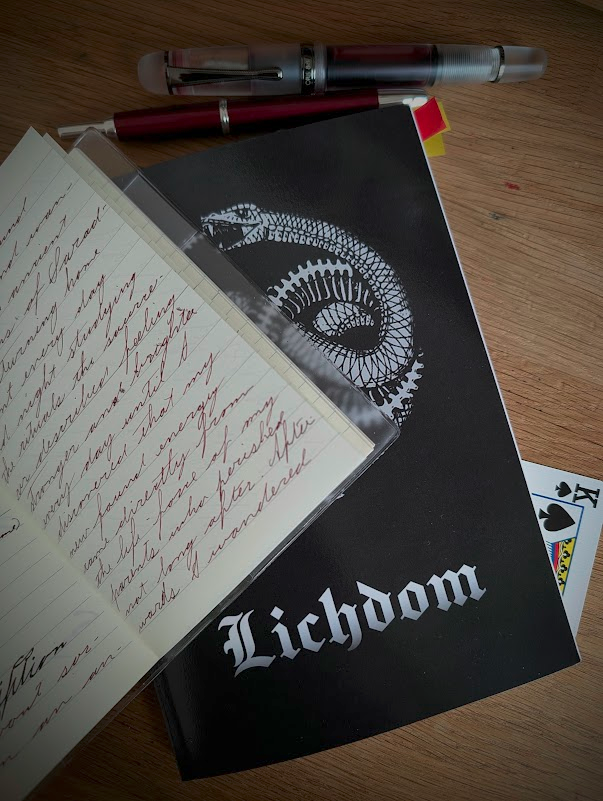 ancient
of
home
every day
night studying
rituals the
describes feeling
stronger and brighter
every day until I
discovered that my
new found energy
came directly from
the life-force of my
parents who perished
not long after. After-
wards I wandered
an an-
Lichdom
K